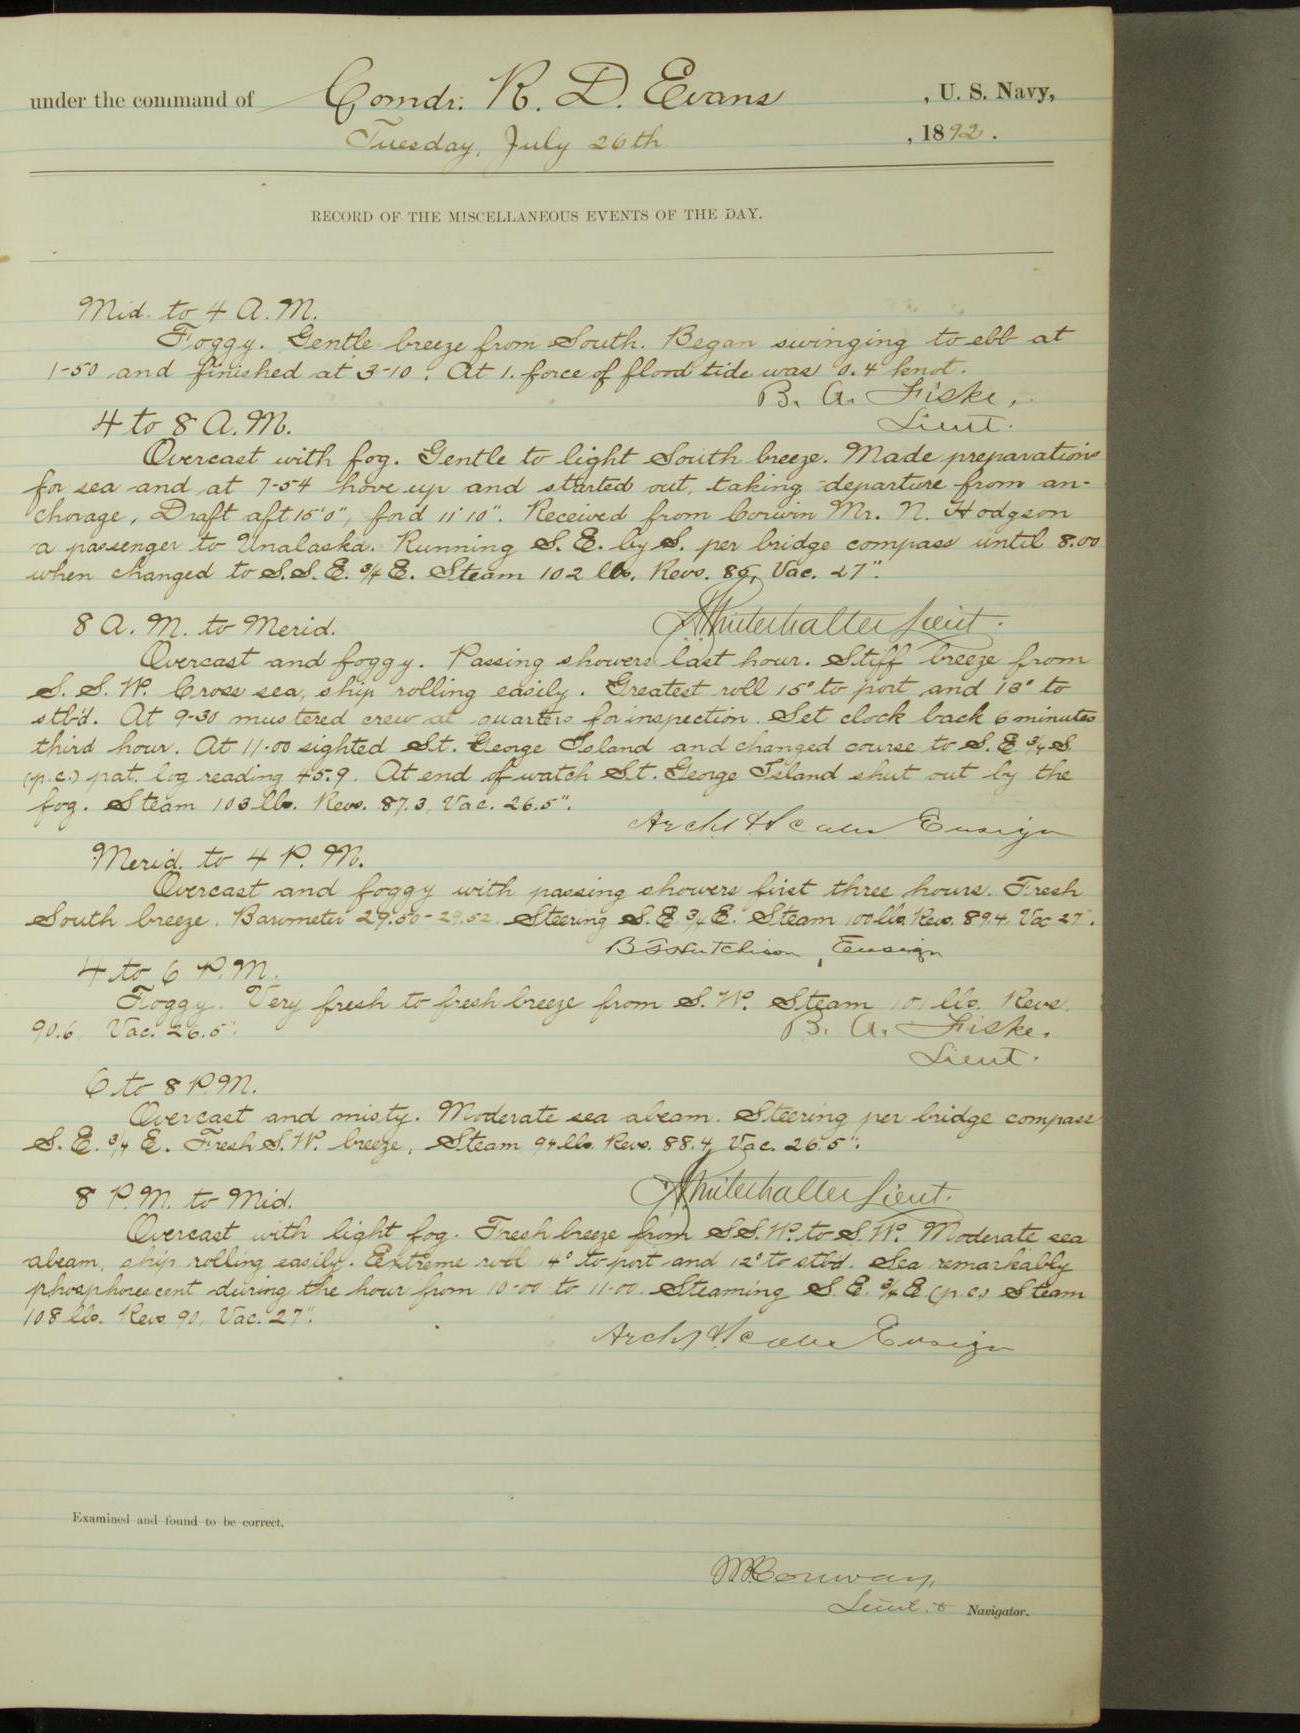 under the command of Comdr. R. D. Evans, U. S. Navy,
Tuesday, July 26th, 1892.
RECORD OF THE MISCELLANEOUS EVENTS OF THE DAY.
Mid. to 4 A.M.
Foggy. Gentle breeze from South. Began swinging to ebb at
1-50 and finished at 3-10. At 1. force of flood tide was 0.4 knot.
B. A. Fiske,
Lieut.
4 to 8 A.M.
Overcast with fog. Gentle to light South breeze. Made preparations
for sea and at 7-54 hove up and started out, taking departure from an-
chorage, Draft aft 15'0", for'd 11'10". Received from Corwin Mr. N. Hodgson
a passenger to Unalaska. Running S. E. by S. per bridge compass until 8.00
when changed to S.S.E. 3/4 E. Steam 102 lbs. Revs. 86, Vac. 27".
Winterhalter Lieut.
8 A. M. to Merid.
Overcast and foggy. Passing showers last hour. Stiff breeze from
S. S. W. Cross sea, ship rolling easily. Greatest roll 15° to port and 18° to
stb'd. At 9-30 mustered crew at quarters for inspection. Set clock back 6 minutes
third hour. At 11-00 sighted St. George Island and changed course to S. E. 3/4 S.
(p.c.) pat. log reading 45.9. At end of watch St. George Island shut out by the
fog. Steam 103 lbs. Revs. 87.3, Vac. 26.5".
Archd H Scales Ensign
Merid. to 4 P. M.
Overcast and foggy with passing showers first three hours. Fresh
South breeze. Barometer 29.50-29.52. Steering S. E. 3/4 E. Steam 100 lbs. Revs. 89.4, Vac 27".
B F Hutchison, Ensign
4 to 6 P.M.
Foggy. Very fresh to fresh breeze from S. W. Steam 101 lbs. Revs.
90.6 Vac. 26.5".
B. A. Fiske.
Lieut.
6 to 8 P.M.
Overcast and misty. Moderate sea abeam. Steering per bridge compass
S. E. 3/4 E. Fresh S. W. breeze, Steam 94 lbs. Revs. 88.4, Vac. 26.5".
Winterhalter Lieut.
8 P.M. to Mid.
Overcast with light fog. Fresh breeze from S.S.W. to S.W. Moderate sea
abeam, ship rolling easily. Extreme roll 4° to port and 12° to stb'd. Sea remarkably
phosphorescent during the hour from 10-00 to 11-00. Steaming S. E. 3/4 E. (p.c.) Steam
108 lbs. Revs. 90, Vac. 27".
Archd H Scales Ensign
Examined and found to be correct.
Conway,
Lieut. & Navigator.